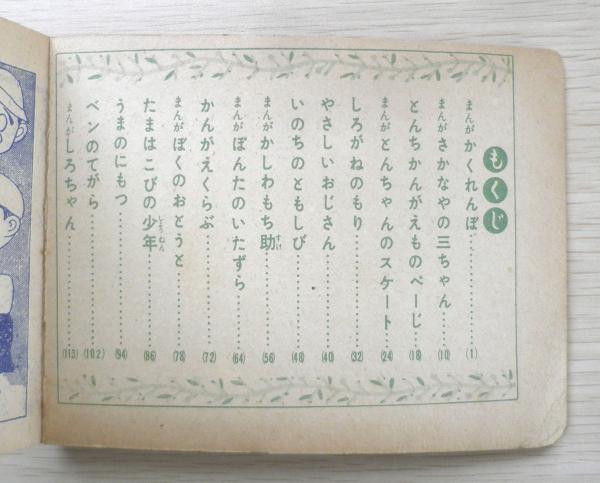 もくじ
まんが かくれんぼ…………(1)
まんが さかなやの三ちゃん…………(10)
とんちかんがえものページ…………(18)
まんが とんちゃんのスケート…………(24)
しろがねのもり…………(32)
やさしいおじさん…………(40)
いのちのともしび…………(48)
まんが かしわもち助すけ…………(56)
まんが ぽんたのいたずら…………(64)
かんがえくらぶ…………(72)
まんが ぼくのおとうと…………(78)
たまはこびの少年しょうねん…………(86)
うまのにもつ…………(94)
ベンのてがら…………(102)
まんが しろちゃん…………(113)